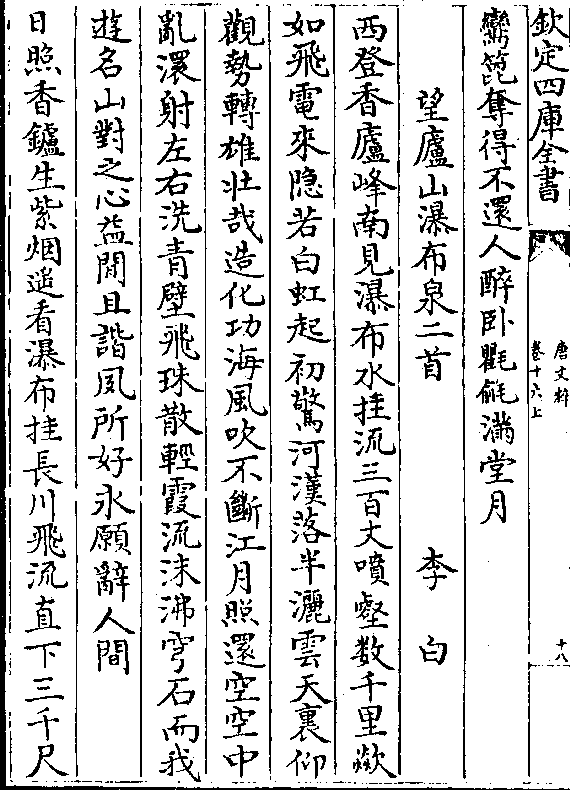 欽定四庫全書
唐文粹
卷十六上
十八
鸞篦奪得不還人醉卧氍毹滿堂月
望廬山瀑布泉二首 李白
西登香廬峰南見瀑布水挂流三百丈噴壑数千里歘
如飛電來隐若白虹起初驚河漢落半灑雲天裏仰
觀勢轉雄壯哉造化功海風吹不斷江月照還空空中
亂潨射左右洗青壁飛珠散輕霞流沫沸穹石而我
遊名山對之心益閒且諧夙所好永願辭人間
日照香鑪生紫烟遥看瀑布挂長川飛流直下三千尺